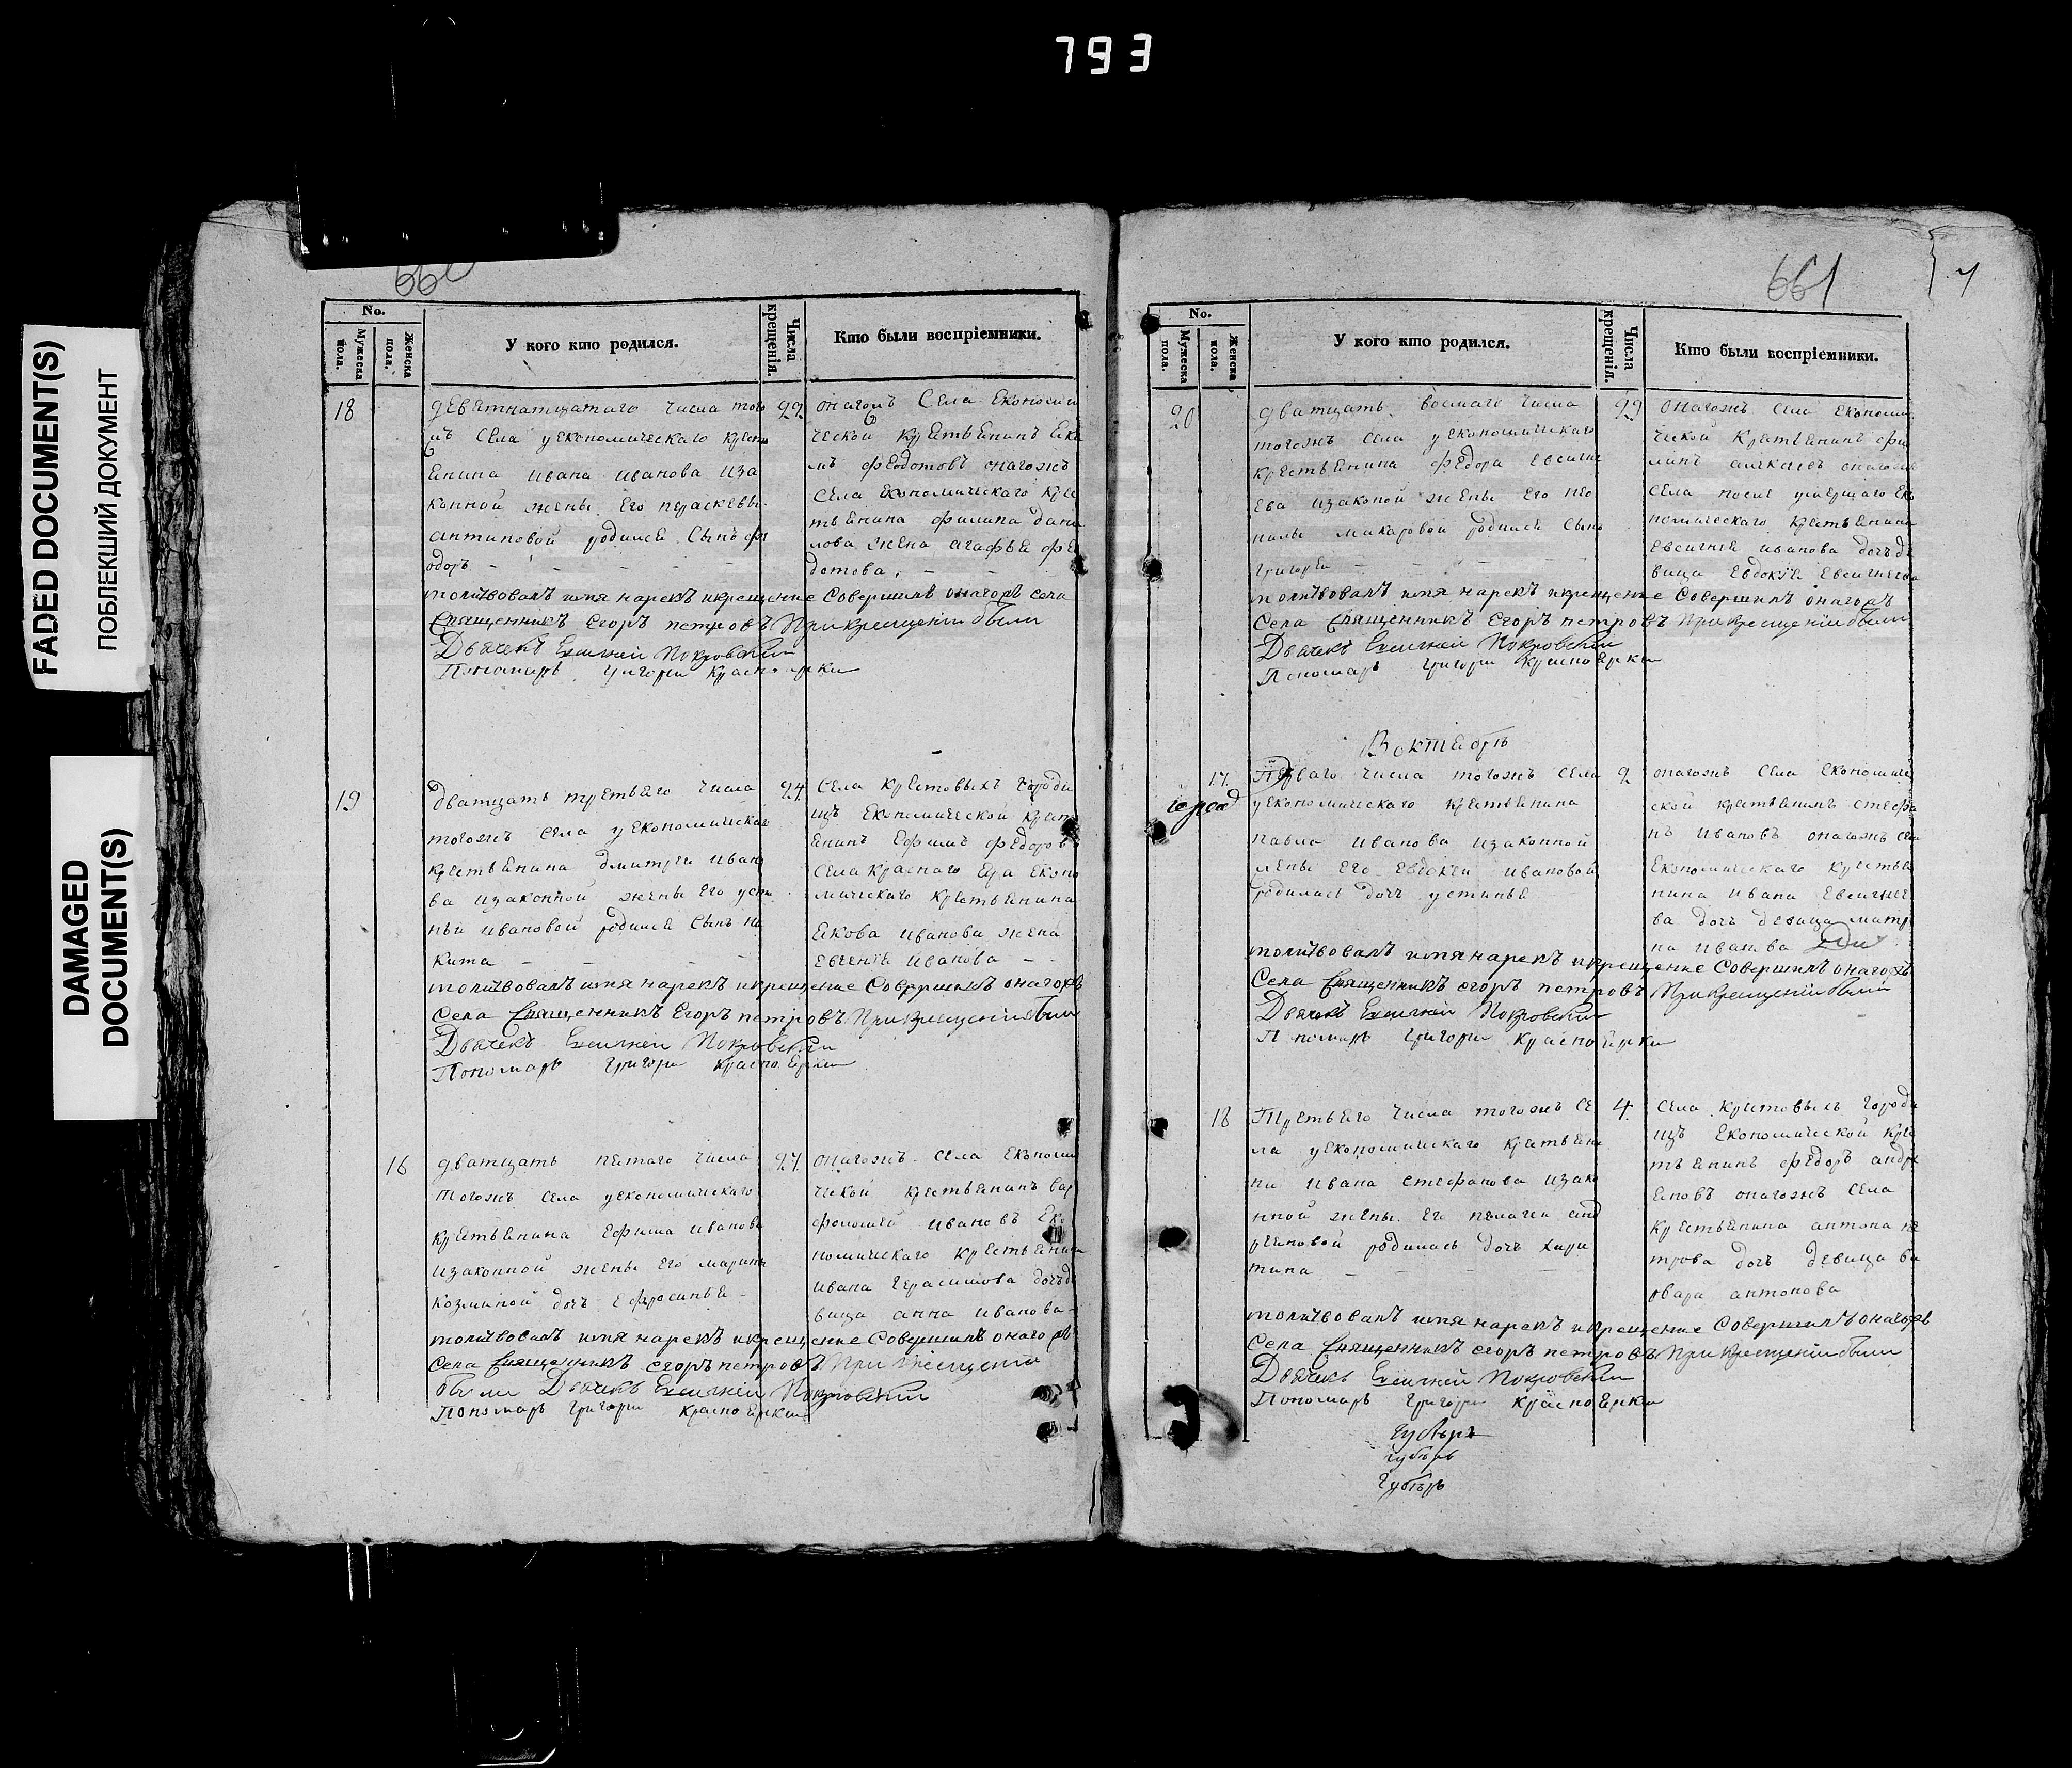 793
FADED DOCUMENT(S)
ПОБЛЕКШИЙ ДОКУМЕНТ
DAMAGED
DOCUMENT(S)
660
No.
Мужеска пола.
Женска пола.
У кого кто родился.
Числа крещенія.
Кто были воспріемники.
18
девятнатцатаго числа того
жъ села уекономическаго крест
янина ивана иванова иза
конной жены его параскевы
антиповой родился сынъ фе
одоръ
22
онагожъ села економи
ческой крестьянинъ яко
мъ федотовъ онагожъ
села економическаго кре
тьянина филипа дани
лова жена агафья фе
дотова
молитвовалъ имя нарекъ икрещение Совершилъ онагожъ села
Священникъ Егоръ петровъ Прикрещеніи были
Дьячекъ Евсигнѣй Покровскій
Пономарь Григори Красноярки
19
Дватцать третьяго числа
тогожъ села уекономическаго
крестьянина дмитрея ивано
ва изаконной жены его усти
ньи ивановой родился сынъ ни
кита
24
села крестовыхъ городи
щъ економической крест
янинъ Ефимъ федоровъ
села Краснаго яра еконо
мическаго крестьянина
якова иванова жена
евгения иванова
молитвовалъ имя нарекъ икрещение Совершилъ онагожъ
Села Священникъ Егоръ петровъ Прикрещеніи были
Дьячекъ Евсигнѣй Покровскій
Пономарь Григори Красноярки
16
дватцать пятаго числа
тогожъ села уекономическаго
крестьянина Ефима иванова
изаконной жены его марины
козминой дочь ефросинья
27
онагожъ села економи
ческой крестьянинъ вар
фоломей ивановъ Еко
номическаго крестьянина
ивана герасимова дочь де
вица анна иванова
молитвовалъ имя нарекъ икрещение Совершилъ онагожъ
Села Священникъ егоръ петровъ При крещеніи
были Дьячекъ Евсигнѣй Покровскій
Пономарь Григори Красноярки
661
No.
Мужеска пола.
Женска пола.
У кого кто родился.
Числа крещенія.
Кто были воспріемники.
20
дватцать восмаго числа
тогожъ села уекономическаго
крестьянина федора евсигне
ева изаконой жены его нео
нилы макаровой родился сынъ
григорей
29
онагожъ села економи
ческой крестьянинъ фи
липъ онагожъ
села после умершаго еко
номическаго крестьянина
евсигнея иванова дочь де
вица евдокия евсигнеева
молитвовалъ имя нарекъ икрещение Совершилъ онагожъ
Села Священникъ Егоръ петровъ Прикрещеніи были
Дьячекъ Евсигнѣй Покровскій
Пономарь григори Красноярки
Воктябрѣ
17
Перваго числа тогожъ села
уекономическаго крестьянина
павла иванова изаконной
жены его евдокеи ивановой
родилась дочь устинья
2
онагожъ села економиче
ской крестьянинъ стефа
нъ ивановъ онагожъ села
економическаго крестья
нина ивана евсигнее
ва дочь девица матре
на иванова
молитвовалъ имянарекъ икрещение Совершилъ онагожъ
Села Священникъ егоръ петровъ Прикрещеніи были
Дьячекъ Евсигнѣй Покровскій
Пономарь Григори Красноярки
18
Третьяго числа тогожъ се
ла уекономическаго крестьяни
на ивана стефанова изако
нной жены его пелагеи анд
реяновой родилась дочь хари
тина
4
села крестовыхъ городи
щъ економической кре
тьянинъ федоръ андре
яновъ онагожъ села
крестьянина антона пе
трова дочь девица ва
рвара антонова
молитвовалъ имя нарекъ икрещение Совершилъ онагожъ
Села Священникъ егоръ петровъ Прикрещеніи были
Дьячекъ Евсигнѣй Покровскій
Пономарь Григори Красноярки